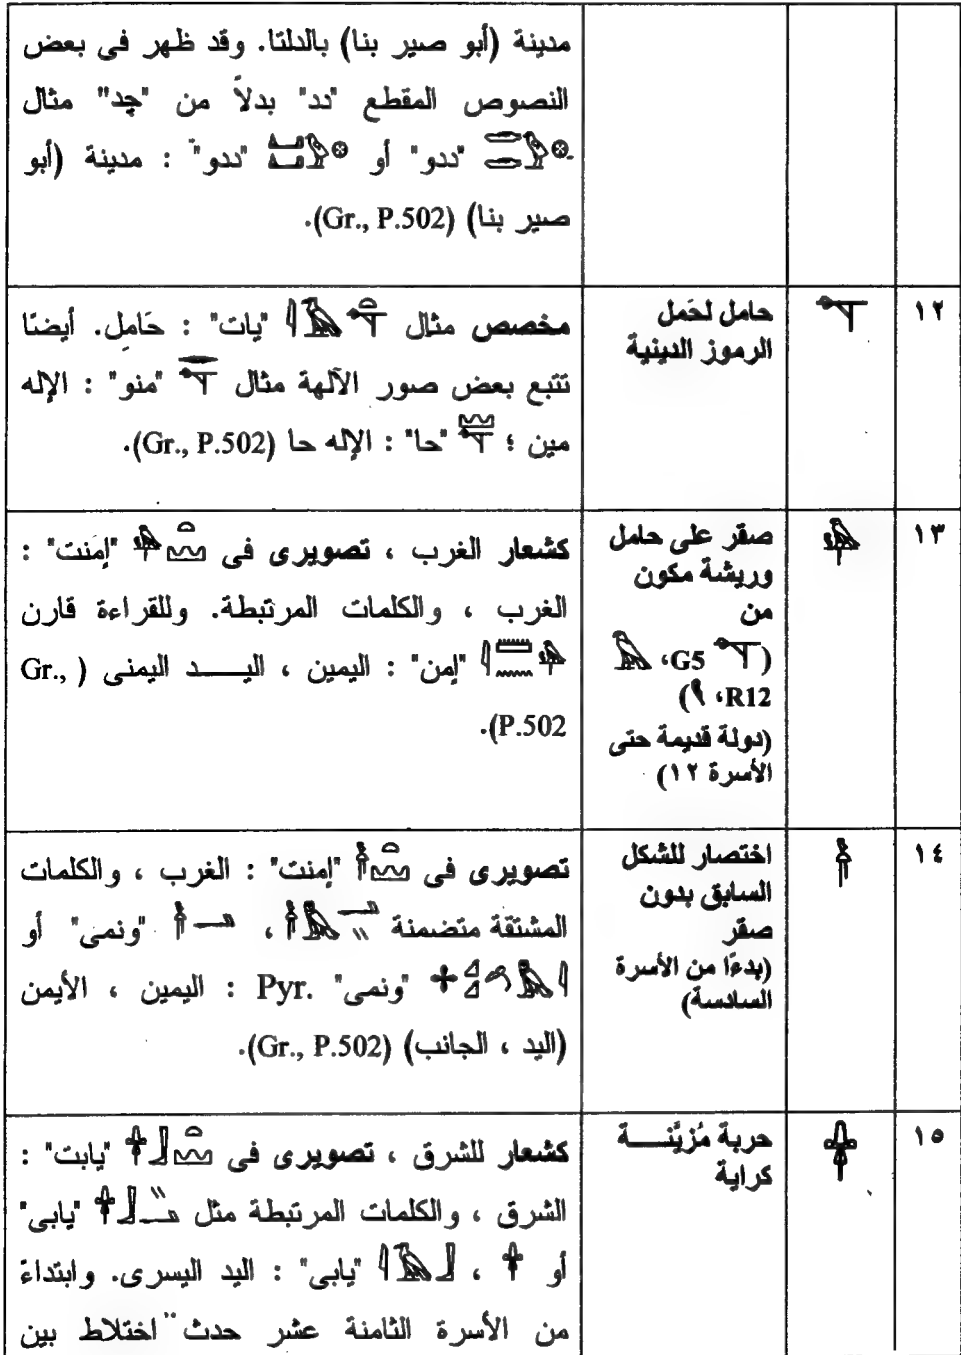 مدينة (أبو صير بنا) بالدلتا. وقد ظهر فى بعض
النصوص المقطع "دد" بدلاً من "چد" مثال
"ددو" أو "ددو" : مدينة (أبو
صير بنا) (Gr., P.502).
١٢
حامل لحَمل
الرموز الدينية
مخصص مثال "يات" : حَامِل. أيضنًا
تتبع بعض صور الآلهة مثال "منو" : الإله
مين ؛ "حا" : الإله حا (Gr., P.502).
١٣
صقر على حامل
وريشة مكون
من
(G5،
R12، )
(دولة قديمة حتى
الأسرة ١٢)
كشعار الغرب ، تصويرى فى "إمَنت" :
الغرب ، والكلمات المرتبطة. وللقراءة قارن
"إمن" : اليمين ، اليـــد اليمنى (Gr.,
P.502).
١٤
اختصار للشكل
السابق بدون
صقر
(بدءًا من الأسرة
السادسة)
تصويرى فى "إمنت" : الغرب ، والكلمات
المشتقة متضمنة ، "ونمى" أو
"ونمى" Pyr. : اليمين ، الأيمن
(اليد ، الجانب) (Gr., P.502).
١٥
حربة مُزيَّنـــة
كراية
كشعار للشرق ، تصويرى فى "يابت" :
الشرق ، والكلمات المرتبطة مثل "يابى"
أو ، "يابى" : اليد اليسرى. وابتداءً
من الأسرة الثامنة عشر حدث اختلاط بين